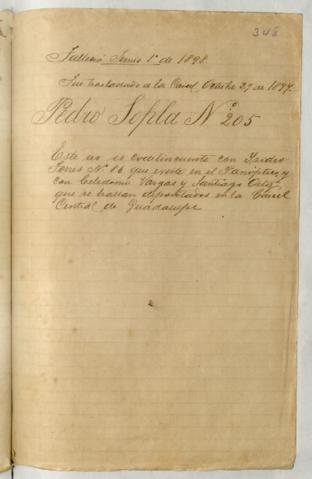 348
Falleció Junio 1º de 1898.
Fue trasladado a la Carcel Octubre 29 de 1897.
Pedro Sopla Nº 205
Este reo es codelincuente con Isidro
Torres Nº 86 que existe en el Panóptico, y
con Celedonio Vargas y Santiago
que se hallan depositados en la Carcel
Central de Guadalupe